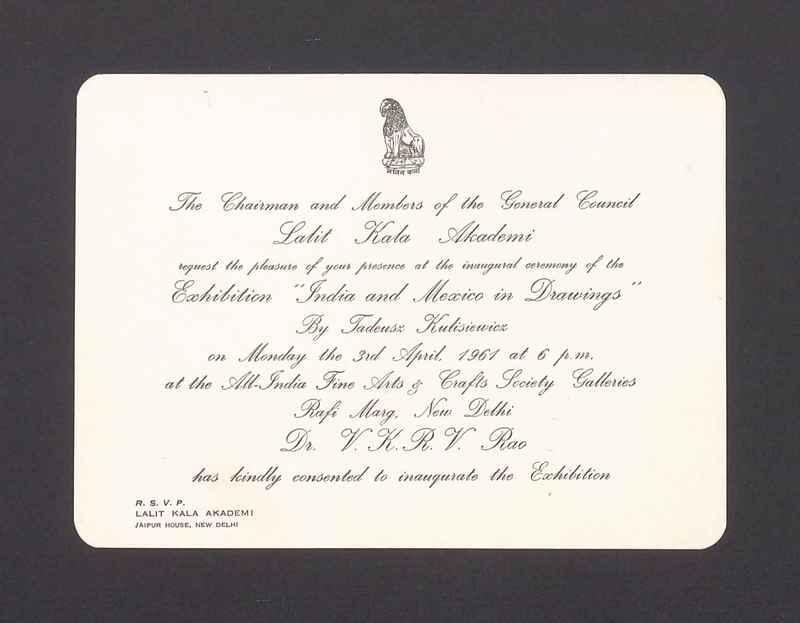 ललित कला
The Chairman and Members of the General Council
Lalit Kala Akademi
request the pleasure of your presence at the inaugural ceremony of the
Exhibition "India and Mexico in Drawings"
By Tadeusz Kulisiewicz
on Monday the 3rd April, 1961 at 6 p.m.
at the All-India Fine Arts & Crafts Society Galleries
Rafi Marg, New Delhi
Dr. V. K. R. V. Rao
has kindly consented to inaugurate the Exhibition
R. S. V. P.
LALIT KALA AKADEMI
JAIPUR HOUSE, NEW DELHI